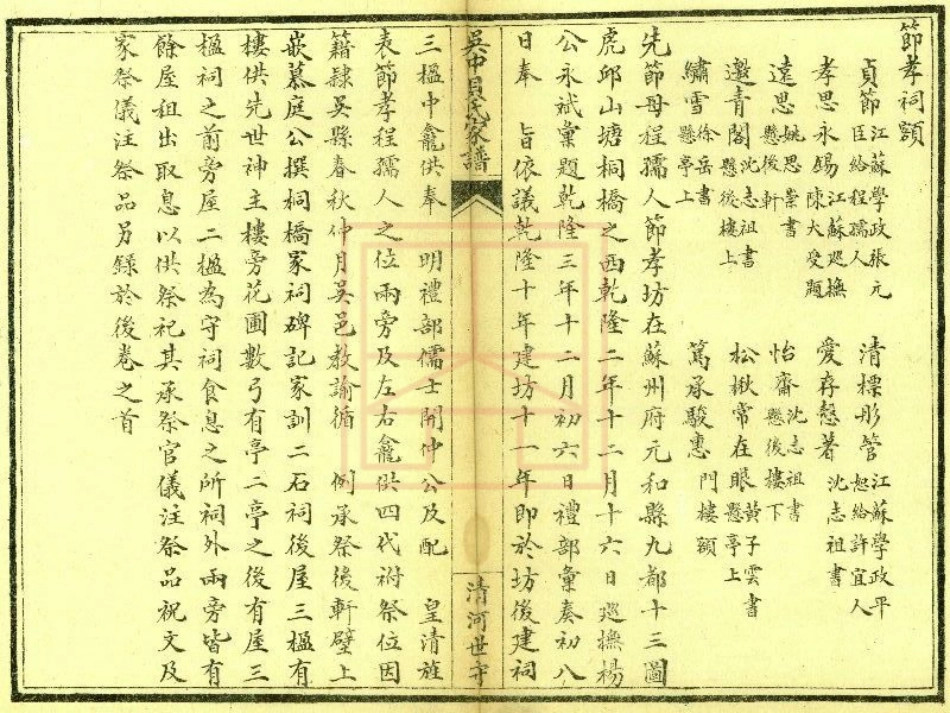 節孝祠額
貞節 江蘇學政張元臣給程孺人
清標彤管 江蘇學政平恕給許宜人
孝思永錫 江蘇巡撫陳大受題
愛存慤著 沈志祖書
遠思 姚思業書懸後軒
怡齋 沈志祖書懸後樓下
邀青閣 沈志祖書懸後樓上
松楸常在眼 黃子雲書懸亭上
繡雪 徐岳書懸亭上
篤承駿惠 門樓額
先節母程孺人節孝坊在蘇州府元和縣九都十三圖
虎邱山塘桐橋之西乾隆二年十二月十六日巡撫楊
公永斌彙題乾隆三年十二月初六日禮部彙奏初八
日奉 旨依議乾隆十年建坊十一年即於坊後建祠
吳中貝氏家譜
清河世守
三楹中龕供奉 明禮部儒士開仲公及配 皇清旌
表節孝程孺人之位兩旁及左右龕供四代祔祭位因
籍隸吳縣春秋仲月吳邑教諭循 例承祭後軒壁上
嵌慕庭公撰桐橋家祠碑記家訓二石祠後屋三楹有
樓供先世神主樓旁花圃數弓有亭二亭之後有屋三
楹祠之前旁屋二楹為守祠食息之所祠外兩旁皆有
餘屋租出取息以供祭祀其承祭官儀注祭品祝文及
家祭儀注祭品另錄於後卷之首